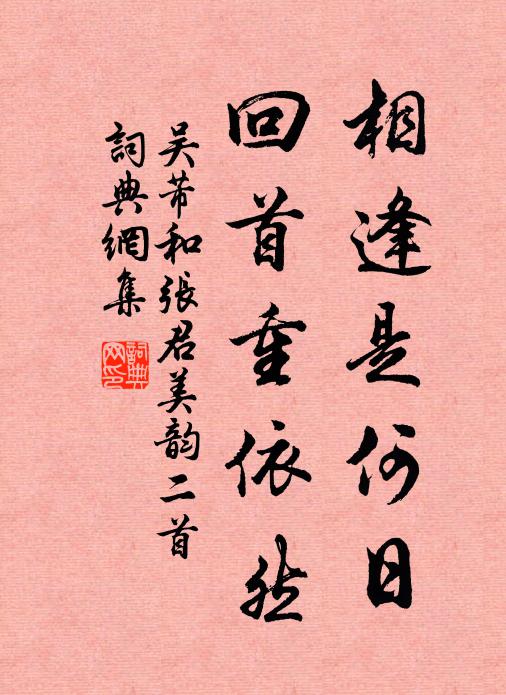 相逢是何日
回首重依然
吴芾和張君美韵二首
詞典網集
詞典
网印